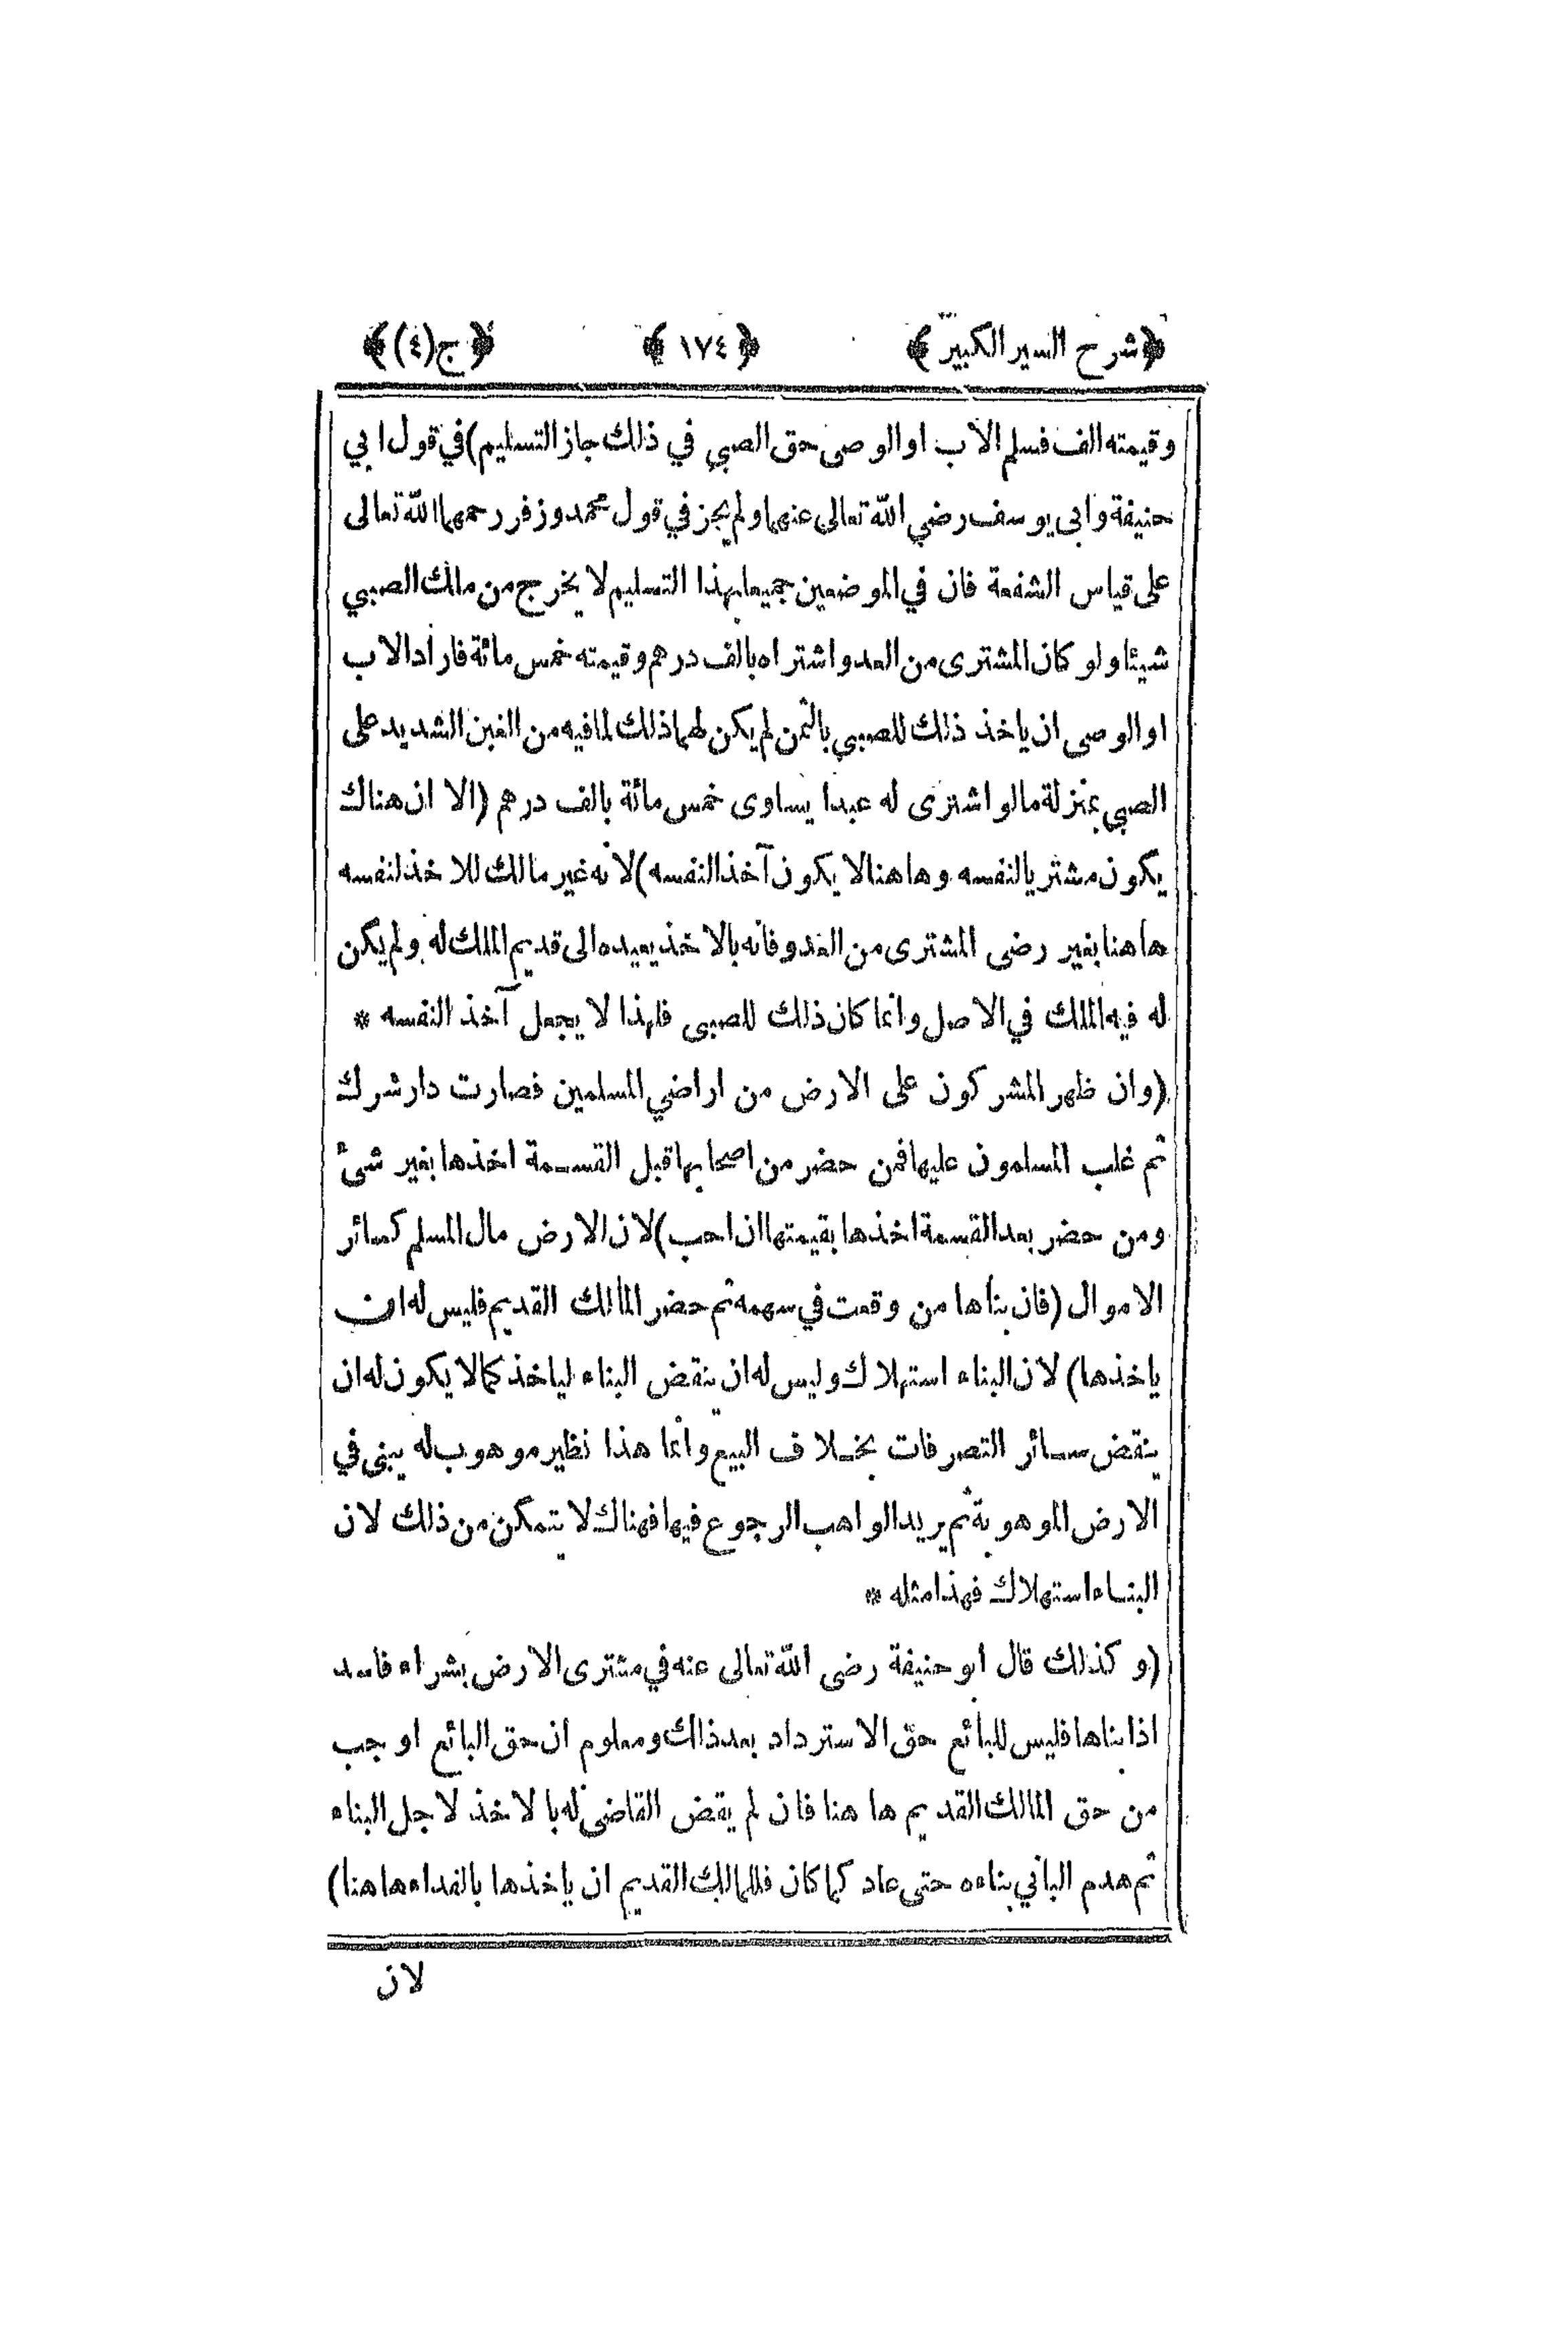 ﴿شرح السير الكبير﴾ ﴿١٧٤﴾ ﴿ج(٤)﴾
وقيمته الف فسلم الاب او الوصى حق الصبي في ذلك جاز التسليم)في قول ابي
حنيفة وابى يوسف رضي الله تعالى عنهما ولم يجز في قول محمد وزفر رحمهما الله تعالى
على قياس الشفعة فان في الموضعين جميعا بهذا التسليم لا يخرج من ملك الصبي
شيئا ولو كان المشترى من العدو اشتراه بالف درهم وقيمته خمس مائة فاراد الاب
او الوصى ان ياخذ ذلك للصبي بالثمن لم يكن لهما ذلك لما فيه من الغبن الشديد على
الصبي بمنزلة ما لو اشترى له عبدا يساوى خمس مائة بالف درهم (الا ان هناك
يكون مشتريا لنفسه وهاهنا لا يكون آخذا لنفسه)لانه غير مالك للاخذ لنفسه
هاهنا بغير رضى المشترى من العدو فانه بالاخذ يعيده الى قديم الملك له ولم يكن
له فيه الملك في الاصل وانما كان ذلك للصبى فلهذا لا يجعل آخذ النفسه *
(وان ظهر المشركون على الارض من اراضي المسلمين فصارت دار شرك
ثم غلب المسلمون عليها فمن حضر من اصحابها قبل القسمة اخذها بغير شئ
ومن حضر بعد القسمة اخذها بقيمتها ان احب)لان الارض مال المسلم كسائر
الاموال (فان بناها من وقعت في سهمه ثم حضر المالك القديم فليس له ان
ياخذها) لان البناء استهلاك وليس له ان ينقض البناء لياخذ كما لا يكون له ان
ينقض سائر التصرفات بخلاف البيع وانما هذا نظير موهوب له يبنى في
الارض الموهوبة ثم يريد الواهب الرجوع فيها فهناك لا يتمكن من ذلك لان
البناء استهلاك فهذا مثله *
(وكذلك قال ابو حنيفة رضى الله تعالى عنه في مشترى الارض بشراء فاسد
اذا بناها فليس للبائع حق الاسترداد بعد ذلك ومعلوم ان حق البائع اوجب
من حق المالك القديم ها هنا فان لم يقض القاضى له بالاخذ لاجل البناء
ثم هدم الباني بناءه حتى عاد كما كان فللمالك القديم ان ياخذها بالفداء هاهنا)
لان